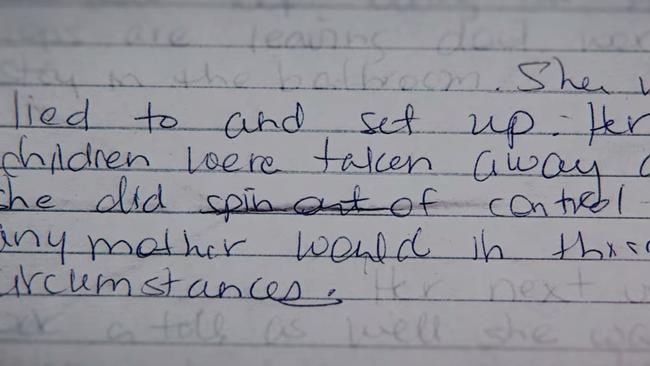 are leaving
stay in the bathroom. She
lied to and set up. Her
children were taken away
she did spin out of control
any mother would in these
circumstances. Her next
a toll as well she was